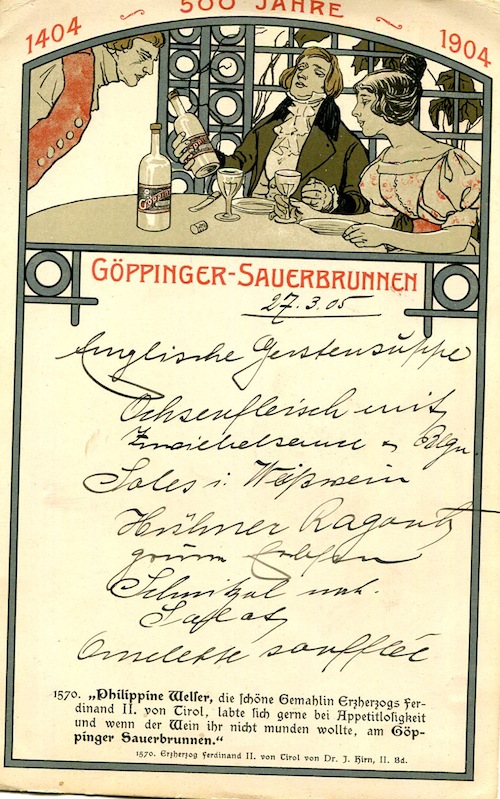 500 JAHRE
1404
1904
Göppinger
GÖPPINGER-SAUERBRUNNEN
27.3.05
Englische Gerstensuppe
Ochsenfleisch mit
Zwiebelsauce &
Soles i. Weißwein
Hühner Ragout
grüne Erbsen
Schnitzel nat.
Salat
Omelette soufflée
1570. „Philippine Welser, die schöne Gemahlin Erzherzogs Fer-
dinand II. von Tirol, labte sich gerne bei Appetitlosigkeit
und wenn der Wein ihr nicht munden wollte, am Göp-
pinger Sauerbrunnen.“
1570. Erzherzog Ferdinand II. von Tirol von Dr. J. Hirn, II. Bd.